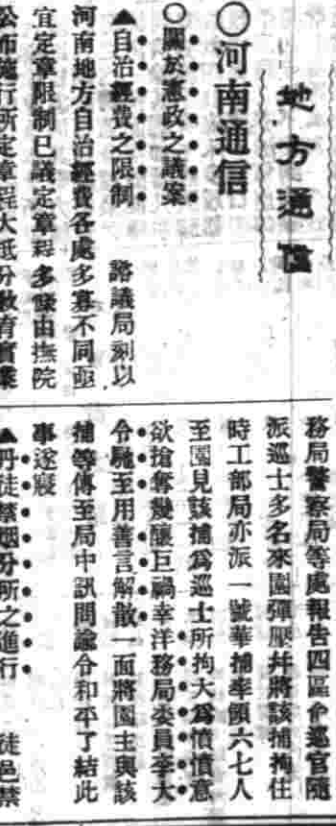 地方通信
○河南通信
○關於憲政之議案
▲自治經費之限制　諮議局刻以
河南地方自治經費各處多寡不同亟
宜定章限制已議定章程多條由撫院
公布施行所定章程大抵分教育實業
務局警察局等處報告四區俞巡官隨
派巡士多名來園彈壓幷將該捕拘住
時工部局亦派一號華捕率領六七人
至園見該捕爲巡士所拘大爲憤憤意
欲搶奪幾釀巨禍幸洋務局委員李大
令馳至用善言解散一面將園主與該
捕等傳至局中訊問諭令和平了結此
事遂寢
▲丹徒禁烟分所之進行　徒邑禁